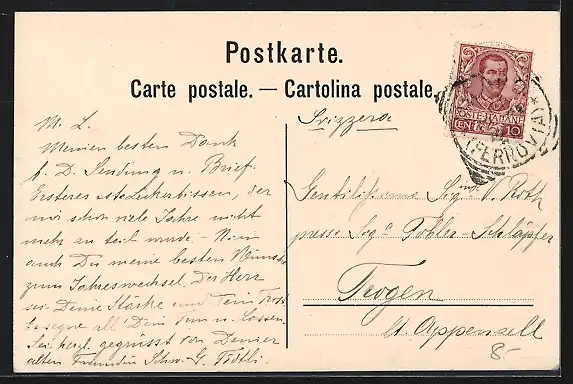 Postkarte.
Carte postale. — Cartolina postale.
Svizzera
POSTE ITALIANE
CENT. 10
FERROVIA
M. L.
Meinen besten Dank
f. D. Sendung u. Brief.
Ersteres Leckerbissen, der
mir schon viele Jahre nicht
mehr zu teil wurde. - Nimm
auch Du meine besten Wünsche
zum Jahreswechsel. Der Herr
sei Deine Stärke und Dein Trost
& segne all' Dein Tun u. Lassen.
Sei herzl. gegrüsst von Deiner
alten Freundin Schw. G.
Gentilissima Sigrina V. Roth
presso Sigra Tobler-Schläpfer
Trogen
Ct. Appenzell
8-